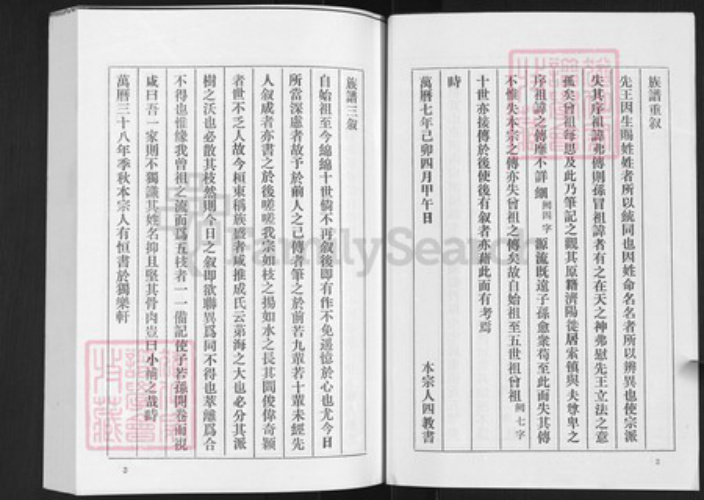 族譜重敘
先王因生賜姓姓者所以統同也因姓命名名者所以辨異也使宗派
失其序祖諱弗傳則孫冒祖諱者有之在天之神弗慰先王立法之意
孤矣曾祖每思及此乃筆記之觀其原籍濟陽徙居索鎮與夫尊卑之
序祖諱之傳靡不詳細 闕四字 源流既遠子孫愈衆苟至此而失其傳
不惟失本宗之傳亦失曾祖之傳矣故自始祖至五世祖曾祖 闕七字
十世亦接傳於後使後有敘者亦藉此而有考焉
時
萬曆七年己卯四月甲午日
本宗人四教書
2
族譜三敘
自始祖至今綿綿十世倘不再敘後即有作不免遥憶於心也尤今日
所當深慮者故予於前人之已傳者筆之於前若九輩若十輩未經先
人敘咸者亦書之於後嗟嗟我宗如枝之揚如水之長其間俊偉奇穎
者世不乏人故今桓東稱族盛者咸推成氏云第海之大也必分其派
樹之沃也必散其枝然則今日之敘即欲聯異爲同不得也萃離爲合
不得也惟緣我曾祖之流而爲五枝者一一備記使子若孫開卷而視
咸曰吾一家則不獨識其姓名抑且堅其骨肉豈曰小補之哉時
萬曆三十八年季秋本宗人有恒書於獨樂軒
3
FamilySearch